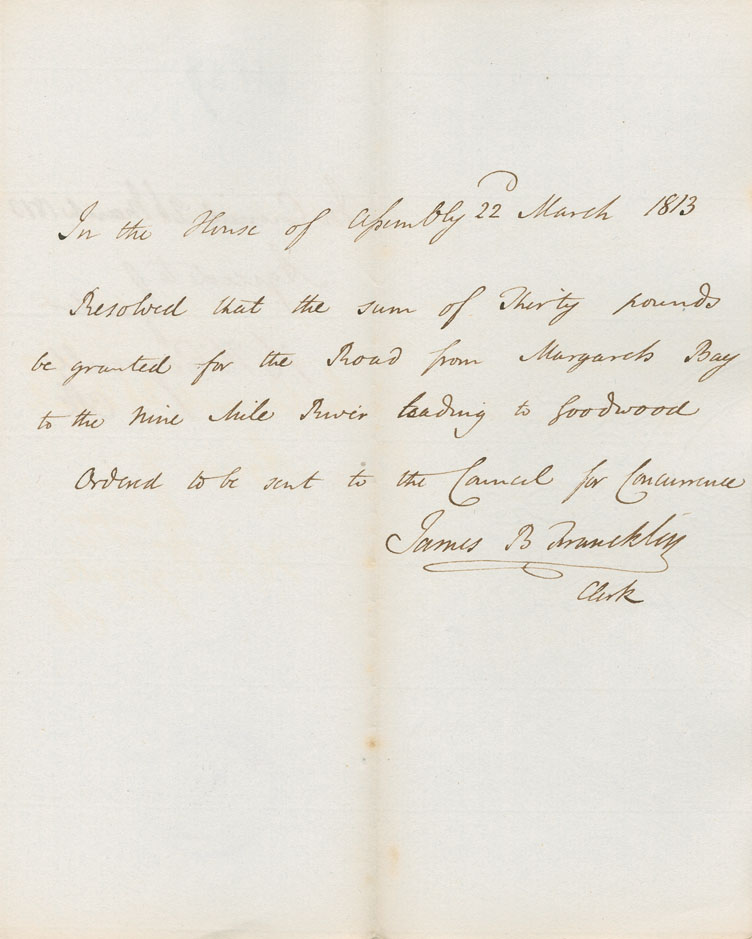 In the House of Assembly 22d March 1813
Resolved that the sum of Thirty pounds
be granted for the Road from Margarets Bay
to the Nine Mile River leading to Goodwood
Ordered to be sent to the Council for Concurrence
James B Francklin
Clerk